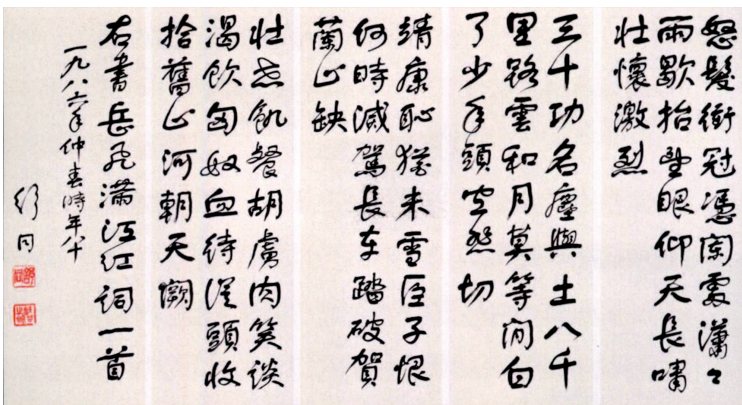 怒髮衝冠憑闌處瀟々
雨歇抬望眼仰天長嘯
壯懷激烈
三十功名塵與土八千
里路雲和月莫等閑白
了少年頭空悲切
靖康恥猶未雪臣子恨
何時滅駕長車踏破賀
蘭山缺
壯志飢餐胡虜肉笑談
渴飲匈奴血待從頭收
拾舊山河朝天闕
右書岳飛滿江紅詞一首
一九八六年仲春時年八十
舒同